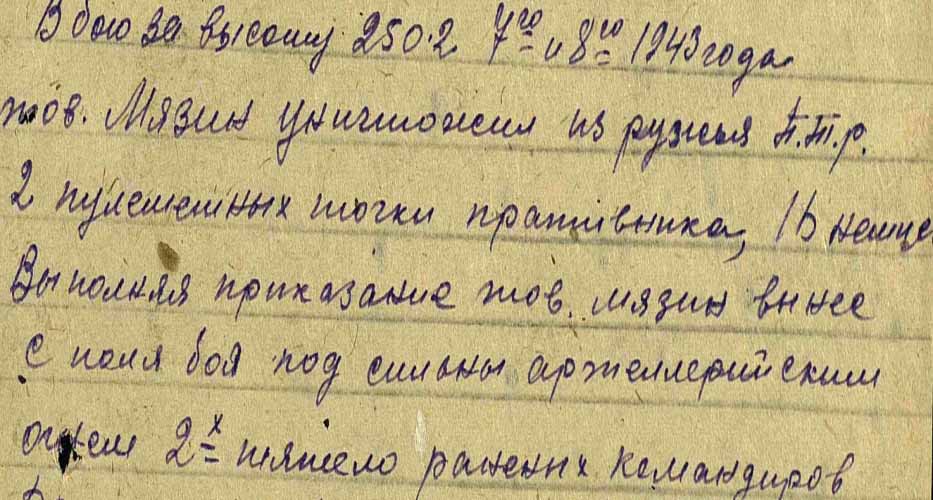 В бою за высоту 250.2 7го и 8го 1943 года
тов. Мязин уничтожил из ружья П.Т.р.
2 пулеметных точки пративника, 16 немце
Выполняя приказание тов. Мязин вынес
с поля боя под сильны артеллерийским
огнем 2х тяжело раненых камандиров